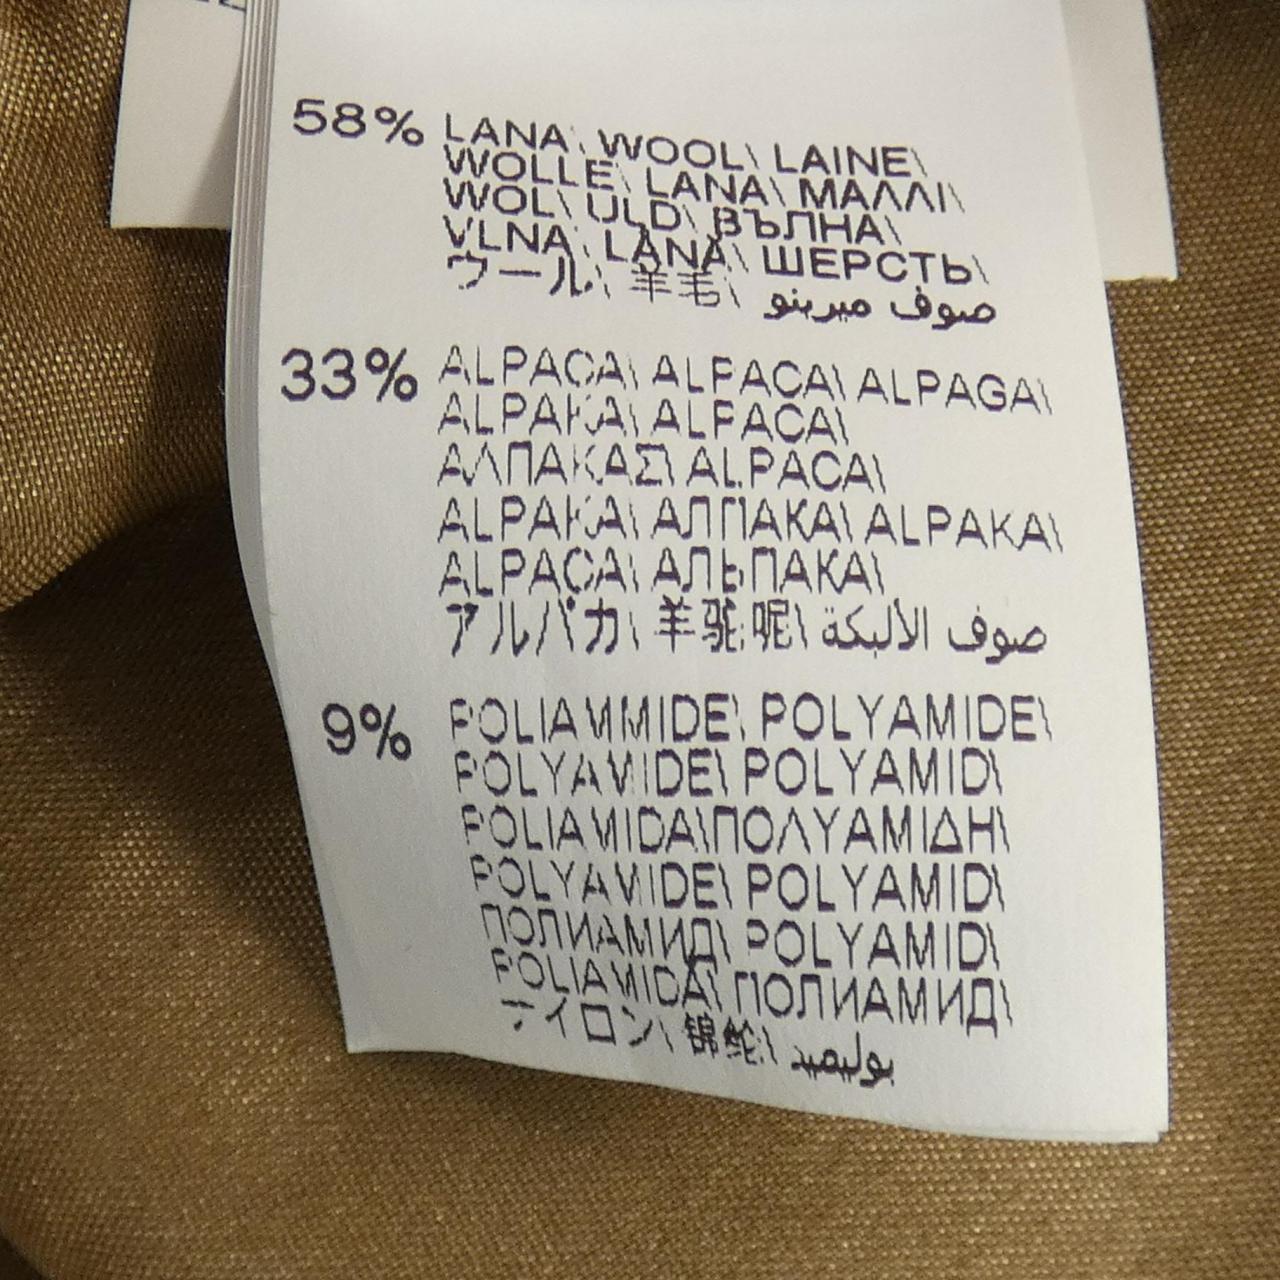 58% LANA\ WOOL\ LAINE\
WOLLE\ LANA\ ΜΑΛΛΙ\
WOL\ ULD\ ВЪЛНА\
VLNA\ LÂNĂ\ ШЕРСТЬ\
ウール\ 羊毛\ صوف ميرينو
33% ALPACA\ ALPACA\ ALPAGA\
ALPAKA\ ALPACA\
ΑΛΠΑΚΑΣ\ ALPACA\
ALPAKA\ АЛПАКА\ ALPAKA\
ALPACA\ АЛЬПАКА\
アルパカ\ 羊驼呢\ صوف الألبكة
9% POLIAMMIDE\ POLYAMIDE\
POLYAMIDE\ POLYAMID\
POLIAMIDA\ΠΟΛΥΑΜΙΔΗ\
POLYAMIDE\ POLYAMID\
ПОЛИАМИД\ POLYAMID\
POLIAMIDĂ\ ПОЛИАМИД\
ナイロン\ 锦纶\ بوليميد